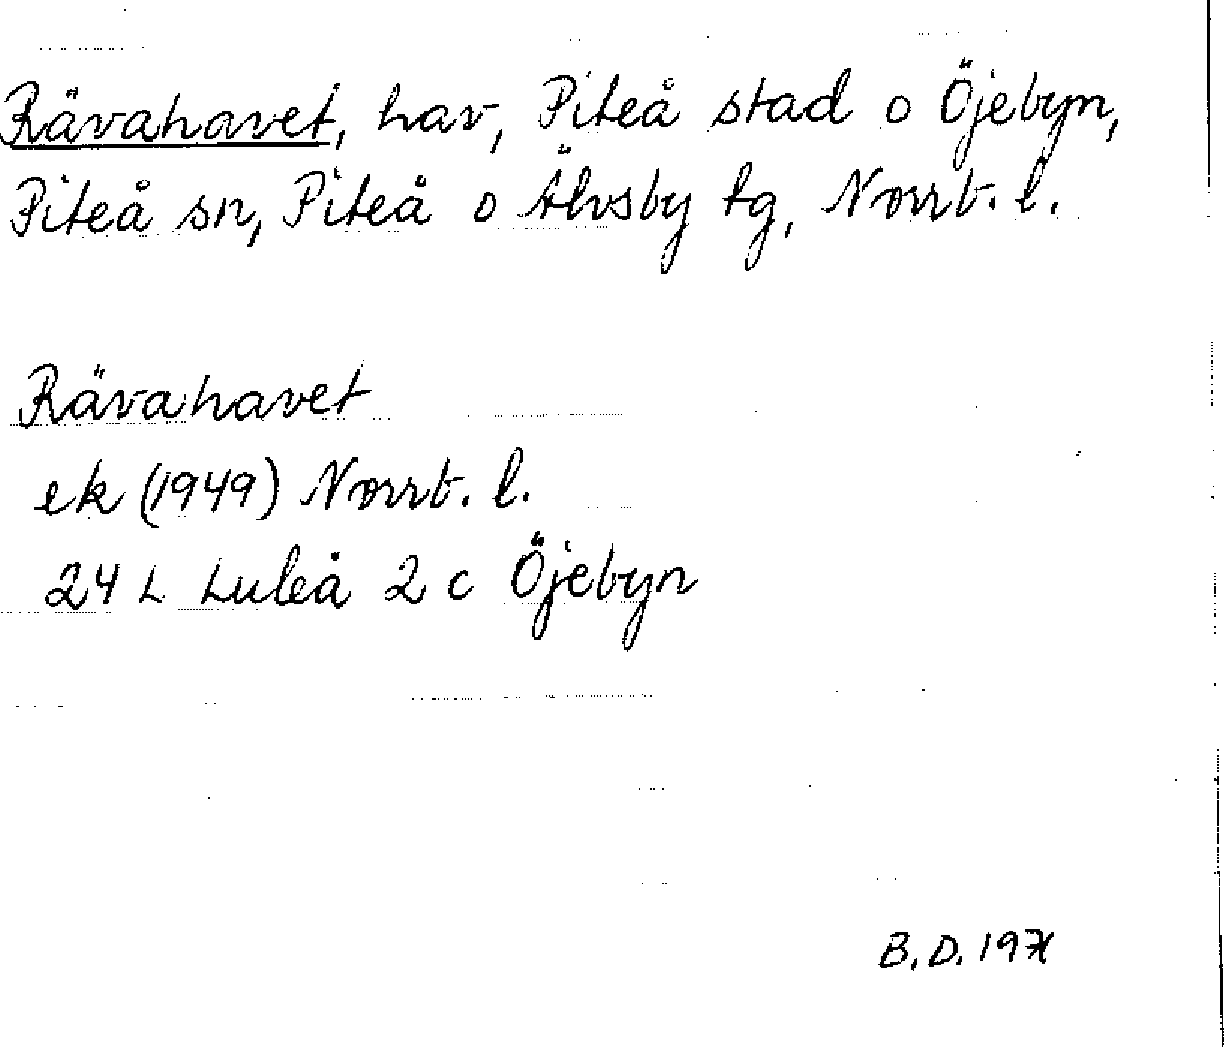 Rävahavet, hav, Piteå stad o Öjebyn,
Piteå sn, Piteå o Älvsby tg, Norrb. l.
Rävahavet
ek (1949) Norrb. l.
24 L Luleå 2 c Öjebyn
B.D. 1971